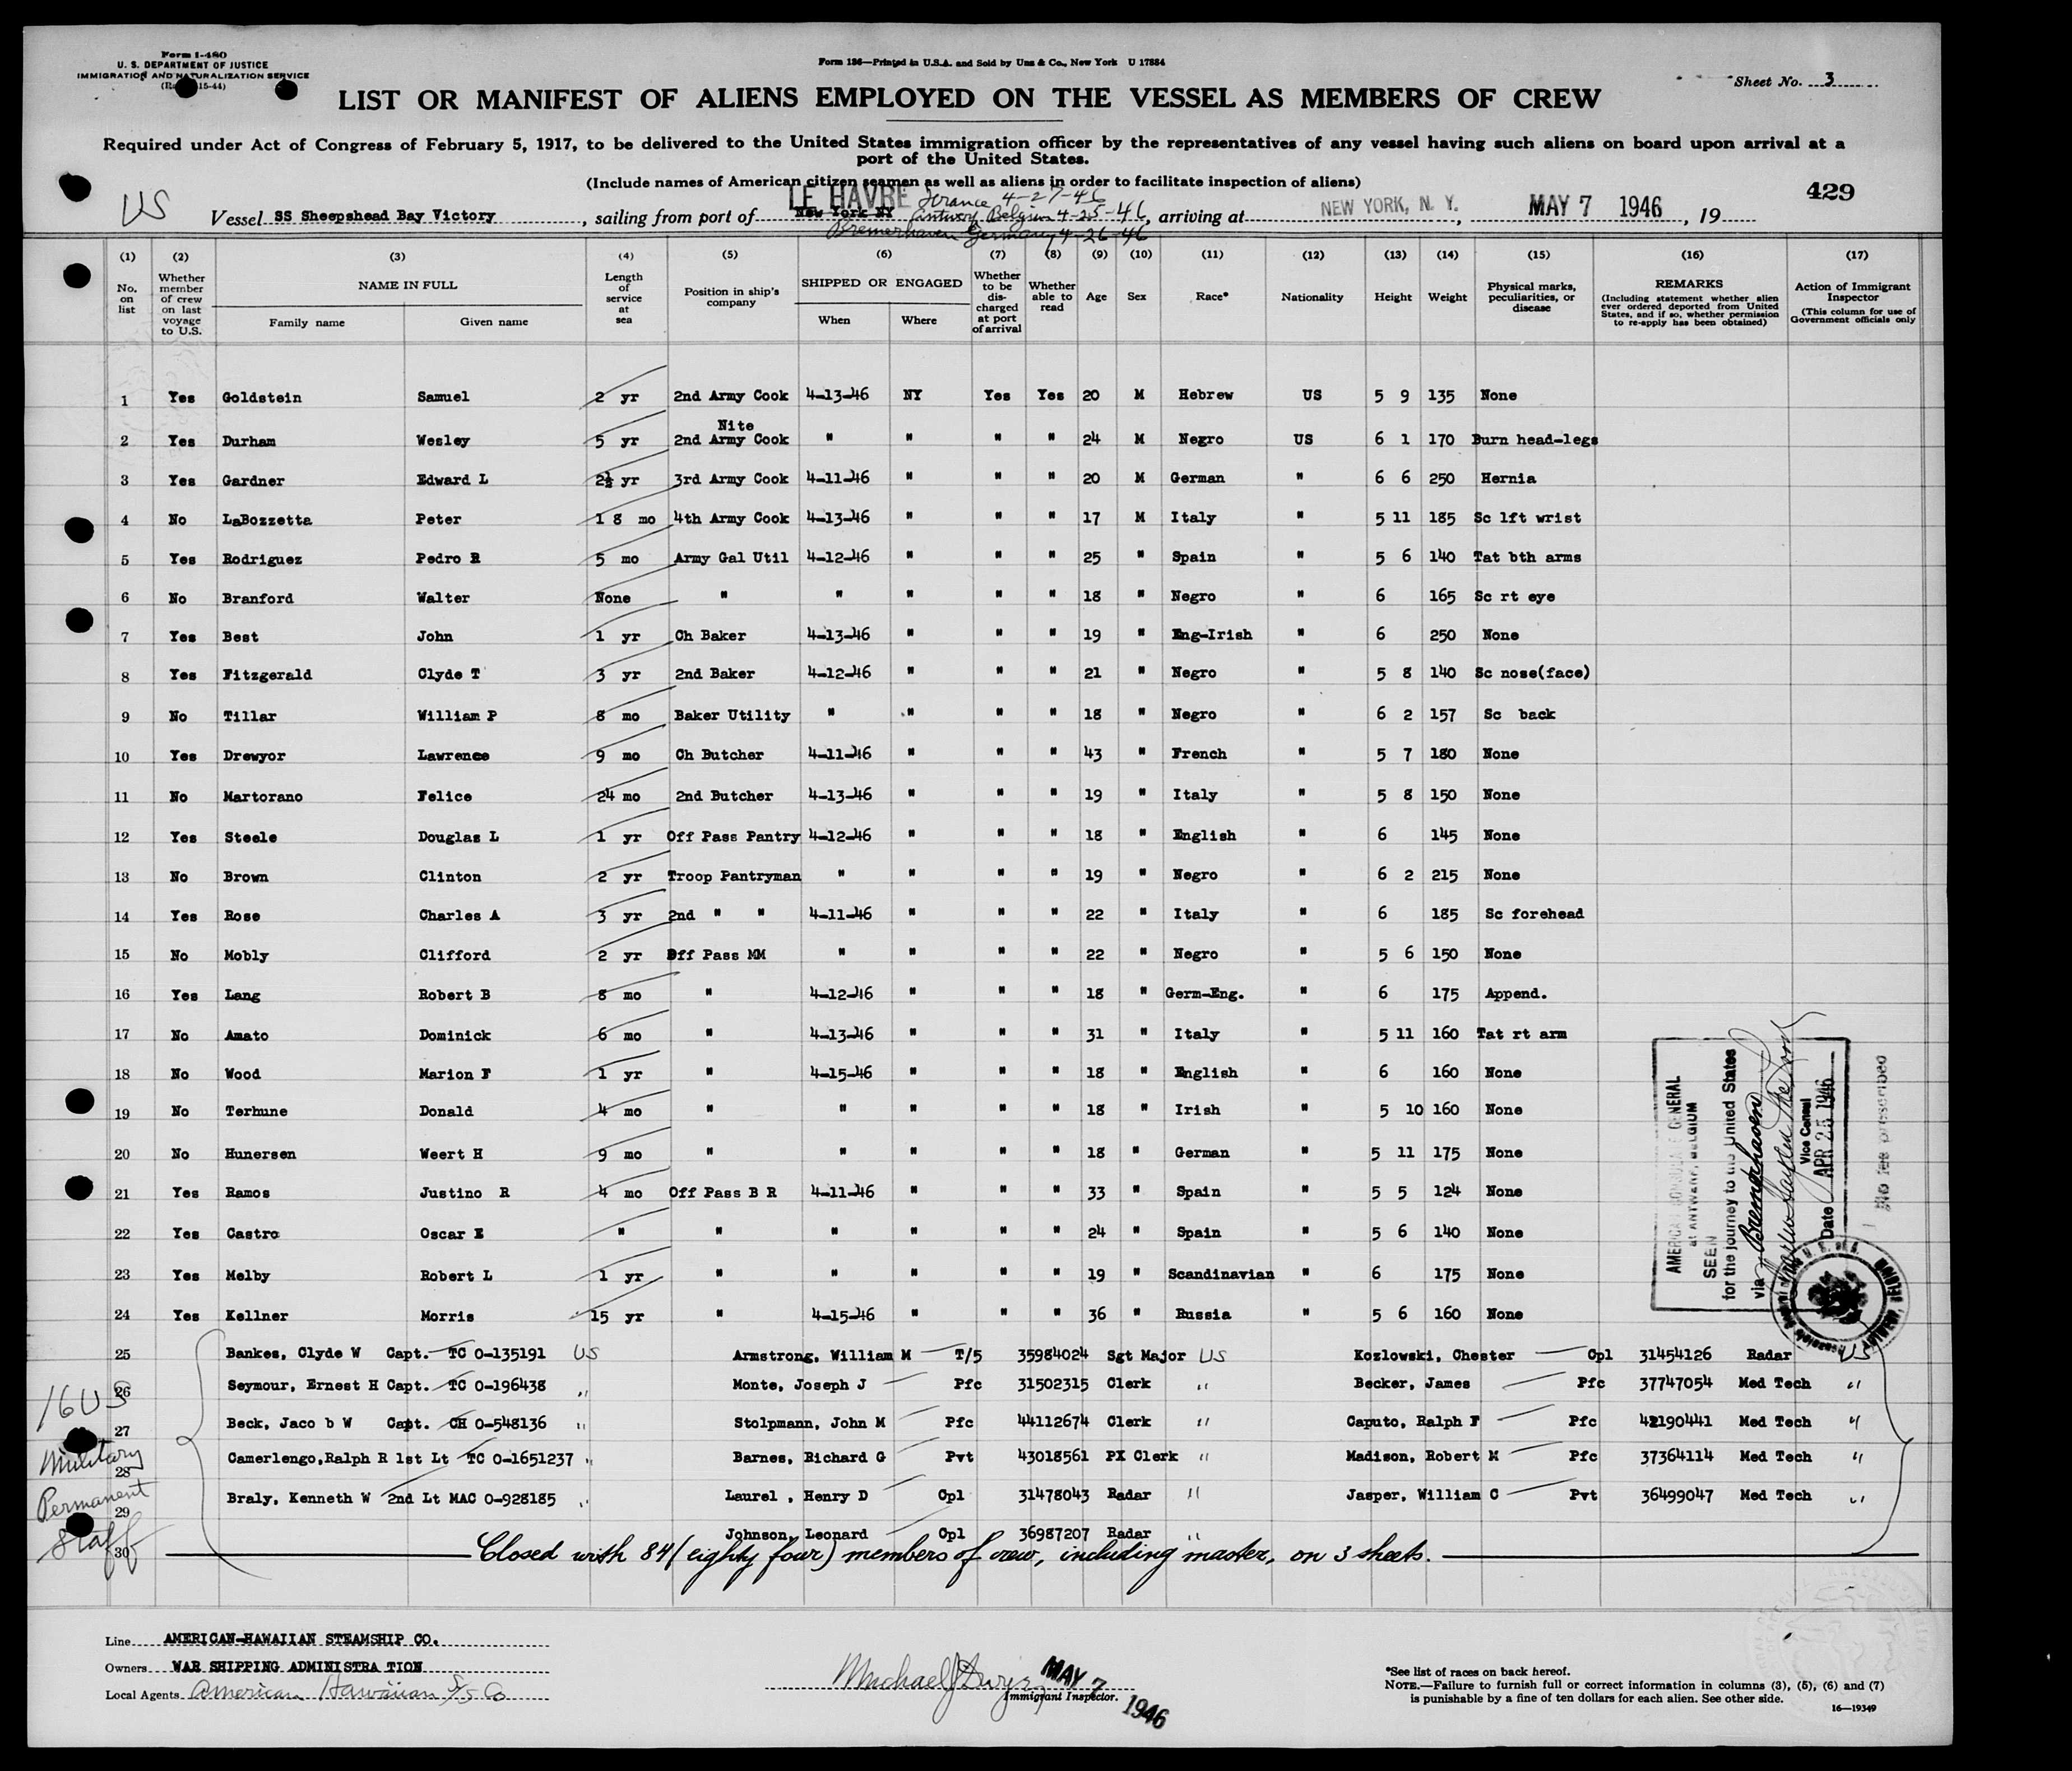 Form I-480
U. S. DEPARTMENT OF JUSTICE
IMMIGRATION AND NATURALIZATION SERVICE
15-44)
Form 136—Printed in U.S.A. and Sold by Unz & Co., New York U 17884
Sheet No. 3
LIST OR MANIFEST OF ALIENS EMPLOYED ON THE VESSEL AS MEMBERS OF CREW
Required under Act of Congress of February 5, 1917, to be delivered to the United States immigration officer by the representatives of any vessel having such aliens on board upon arrival at a
port of the United States.
(Include names of American citizen seamen as well as aliens in order to facilitate inspection of aliens)
429
LE HAVRE France 4-27-46
US Vessel SS Sheepshead Bay Victory, sailing from port of New York NY Antwerp Belgium 4-25-46, arriving at NEW YORK, N. Y., MAY 7 1946, 19
Bremerhaven Germany 4-26-46
(1) (2) (3) (4) (5) (6) (7) (8) (9) (10) (11) (12) (13) (14) (15) (16) (17)
No. on list
Whether member of crew on last voyage to U.S.
NAME IN FULL
Family name Given name
Length of service at sea
Position in ship's company
SHIPPED OR ENGAGED
When Where
Whether to be discharged at port of arrival
Whether able to read
Age
Sex
Race*
Nationality
Height
Weight
Physical marks, peculiarities, or disease
REMARKS
(Including statement whether alien ever ordered deported from United States, and if so, whether permission to re-apply has been obtained)
Action of Immigrant Inspector
(This column for use of Government officials only
1 Yes Goldstein Samuel 2 yr 2nd Army Cook 4-13-46 NY Yes Yes 20 M Hebrew US 5 9 135 None
Nite
2 Yes Durham Wesley 5 yr 2nd Army Cook " " " " 24 M Negro US 6 1 170 Burn head-legs
3 Yes Gardner Edward L 2½ yr 3rd Army Cook 4-11-46 " " " 20 M German " 6 6 250 Hernia
4 No LaBozzetta Peter 1 8 mo 4th Army Cook 4-13-46 " " " 17 M Italy " 5 11 185 Sc lft wrist
5 Yes Rodriguez Pedro R 5 mo Army Gal Util 4-12-46 " " " 25 " Spain " 5 6 140 Tat bth arms
6 No Branford Walter None " " " " " 18 " Negro " 6 165 Sc rt eye
7 Yes Best John 1 yr Ch Baker 4-13-46 " " " 19 " Eng-Irish " 6 250 None
8 Yes Fitzgerald Clyde T 3 yr 2nd Baker 4-12-46 " " " 21 " Negro " 5 8 140 Sc nose(face)
9 No Tillar William P 8 mo Baker Utility " " " " 18 " Negro " 6 2 157 Sc back
10 Yes Drewyor Lawrence 9 mo Ch Butcher 4-11-46 " " " 43 " French " 5 7 180 None
11 No Martorano Felice 24 mo 2nd Butcher 4-13-46 " " " 19 " Italy " 5 8 150 None
12 Yes Steele Douglas L 1 yr Off Pass Pantry 4-12-46 " " " 18 " English " 6 145 None
13 No Brown Clinton 2 yr Troop Pantryman " " " " 19 " Negro " 6 2 215 None
14 Yes Rose Charles A 3 yr 2nd " " 4-11-46 " " " 22 " Italy " 6 185 Sc forehead
15 No Mobly Clifford 2 yr Off Pass MM " " " " 22 " Negro " 5 6 150 None
16 Yes Lang Robert B 8 mo " 4-12-46 " " " 18 " Germ-Eng. " 6 175 Append.
17 No Amato Dominick 6 mo " 4-13-46 " " " 31 " Italy " 5 11 160 Tat rt arm
18 No Wood Marion F 1 yr " 4-15-46 " " " 18 " English " 6 160 None
19 No Terhune Donald 4 mo " " " " " 18 " Irish " 5 10 160 None
20 No Hunersen Weert H 9 mo " " " " " 18 " German " 5 11 175 None
21 Yes Ramos Justino R 4 mo Off Pass B R 4-11-46 " " " 33 " Spain " 5 5 124 None
22 Yes Castro Oscar E " " " " " " 24 " Spain " 5 6 140 None
23 Yes Melby Robert L 1 yr " " " " " 19 " Scandinavian " 6 175 None
24 Yes Kellner Morris 15 yr " 4-15-46 " " " 36 " Russia " 5 6 160 None
25 Bankes, Clyde W Capt. TC O-135191 US Armstrong, William M T/5 35984024 Sgt Major US Kozlowski, Chester Cpl 31454126 Radar US
26 Seymour, Ernest H Capt. TC O-196438 " Monte, Joseph J Pfc 31502315 Clerk " Becker, James Pfc 37747054 Med Tech "
27 Beck, Jaco b W Capt. CH O-548136 " Stolpmann, John M Pfc 44112674 Clerk " Caputo, Ralph F Pfc 42190441 Med Tech "
28 Camerlengo,Ralph R 1st Lt TC O-1651237 " Barnes, Richard G Pvt 43018561 PX Clerk " Madison, Robert M Pfc 37364114 Med Tech "
29 Braly, Kenneth W 2nd Lt MAC O-928185 " Laurel , Henry D Cpl 31478043 Radar " Jasper, William C Pvt 36499047 Med Tech "
Johnson, Leonard Cpl 36987207 Radar "
30 Closed with 84 (eighty four) members of crew, including master, on 3 sheets.
16 US
Military
Permanent
Staff
AMERICAN CONSULATE GENERAL
at ANTWERP, BELGIUM
SEEN
for the journey to the United States
via Bremerhaven
Vice Consul
Date APR 25 1946
No fee prescribed
Line AMERICAN-HAWAIIAN STEAMSHIP CO.
Owners WAR SHIPPING ADMINISTRA TION
Local Agents American Hawaiian SS Co
Michael J Dwyer
MAY 7 1946
Immigrant Inspector.
*See list of races on back hereof.
NOTE.—Failure to furnish full or correct information in columns (3), (5), (6) and (7)
is punishable by a fine of ten dollars for each alien. See other side.
16—19349